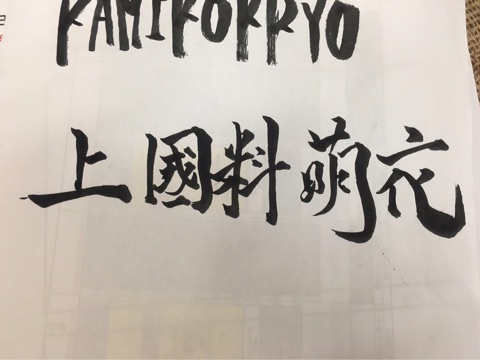 KAMIKOKRYO
上國料萌衣